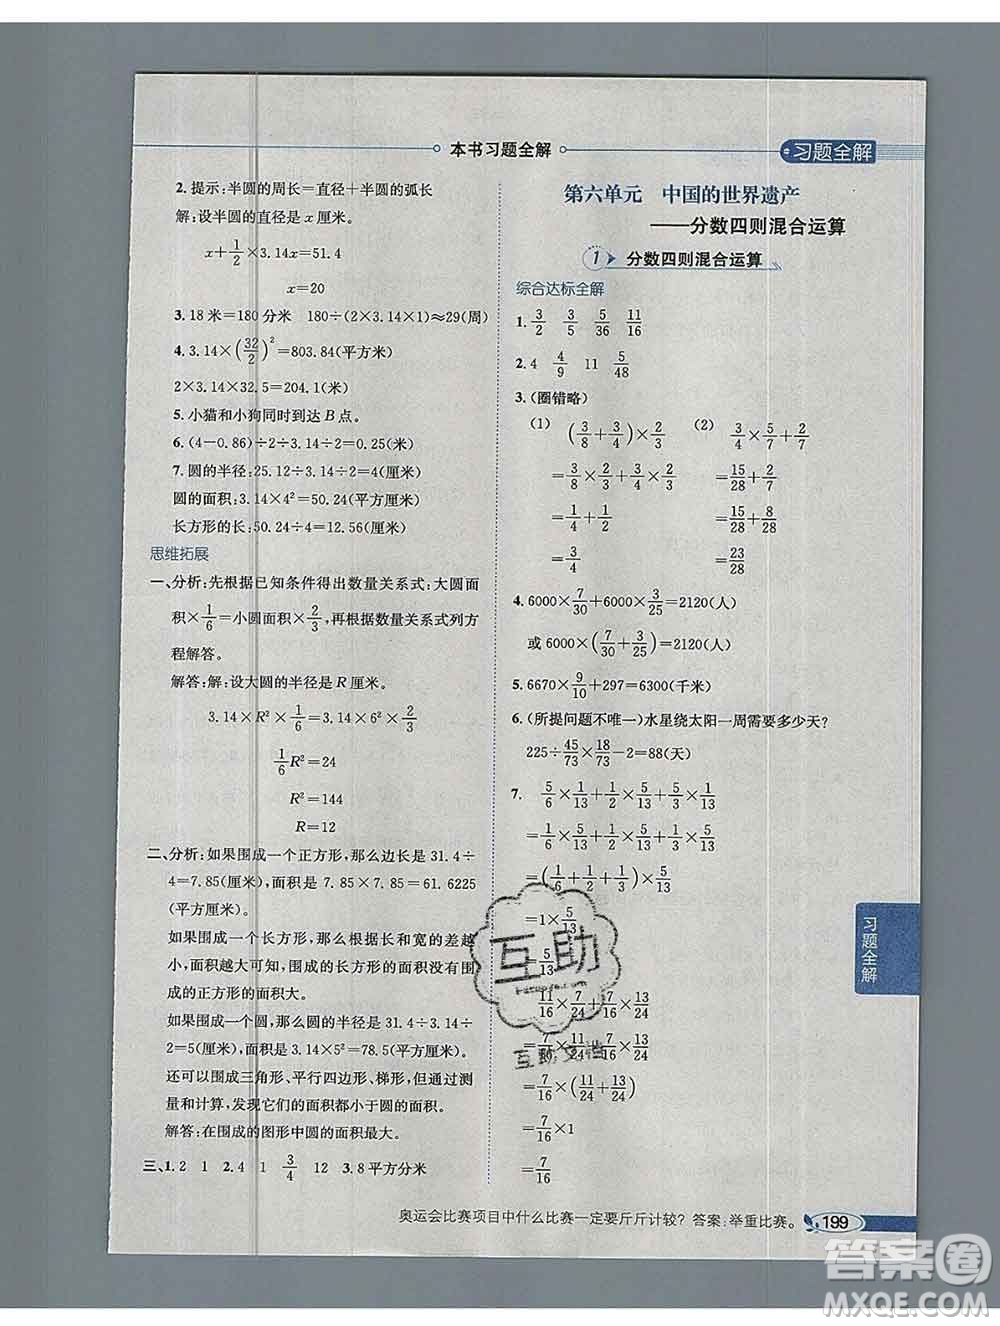 本书习题全解
习题全解
2. 提示:半圆的周长=直径+半圆的弧长
解:设半圆的直径是 x 厘米。
x+1/2×3.14x=51.4
x=20
3. 18 米=180 分米 180÷(2×3.14×1)≈29(周)
4. 3.14×(32/2)²=803.84(平方米)
2×3.14×32.5=204.1(米)
5. 小猫和小狗同时到达 B 点。
6. (4-0.86)÷2÷3.14÷2=0.25(米)
7. 圆的半径:25.12÷3.14÷2=4(厘米)
圆的面积:3.14×4²=50.24(平方厘米)
长方形的长:50.24÷4=12.56(厘米)
思维拓展
一、分析:先根据已知条件得出数量关系式:大圆面
积×1/6=小圆面积×2/3,再根据数量关系式列方
程解答。
解答:解:设大圆的半径是 R 厘米。
3.14×R²×1/6=3.14×6²×2/3
1/6R²=24
R²=144
R=12
二、分析:如果围成一个正方形,那么边长是 31.4÷
4=7.85(厘米),面积是 7.85×7.85=61.6225
(平方厘米)。
如果围成一个长方形,那么根据长和宽的差越
小,面积越大可知,围成的长方形的面积没有围
成的正方形的面积大。
如果围成一个圆,那么圆的半径是 31.4÷3.14÷
2=5(厘米),面积是 3.14×5²=78.5(平方厘米)。
还可以围成三角形、平行四边形、梯形,但通过测
量和计算,发现它们的面积都小于圆的面积。
解答:在围成的图形中圆的面积最大。
三、1. 2 1 2. 4 1 3/4 12 3. 8 平方分米
第六单元 中国的世界遗产
——分数四则混合运算
1 分数四则混合运算
综合达标全解
1. 3/2 3/5 5/36 11/16
2. 4 4/9 11 5/48
3. (圈错略)
(1) (3/8+3/4)×2/3 (2) 3/4×5/7+2/7
=3/8×2/3+3/4×2/3 =15/28+2/7
=1/4+1/2 =15/28+8/28
=3/4 =23/28
4. 6000×7/30+6000×3/25=2120(人)
或 6000×(7/30+3/25)=2120(人)
5. 6670×9/10+297=6300(千米)
6. (所提问题不唯一)水星绕太阳一周需要多少天?
225÷45/73×18/73-2=88(天)
7. 5/6×1/13+1/2×5/13+5/3×1/13
=1/6×5/13+1/2×5/13+1/3×5/13
=(1/6+1/2+1/3)×5/13
=1×5/13
=5/13
11/16×7/24+7/16×13/24
=7/16×11/24+7/16×13/24
=7/16×(11/24+13/24)
=7/16×1
=7/16
习题全解
互助
互助文档
奥运会比赛项目中什么比赛一定要斤斤计较?答案:举重比赛。
199
答案圈
MXQE.COM